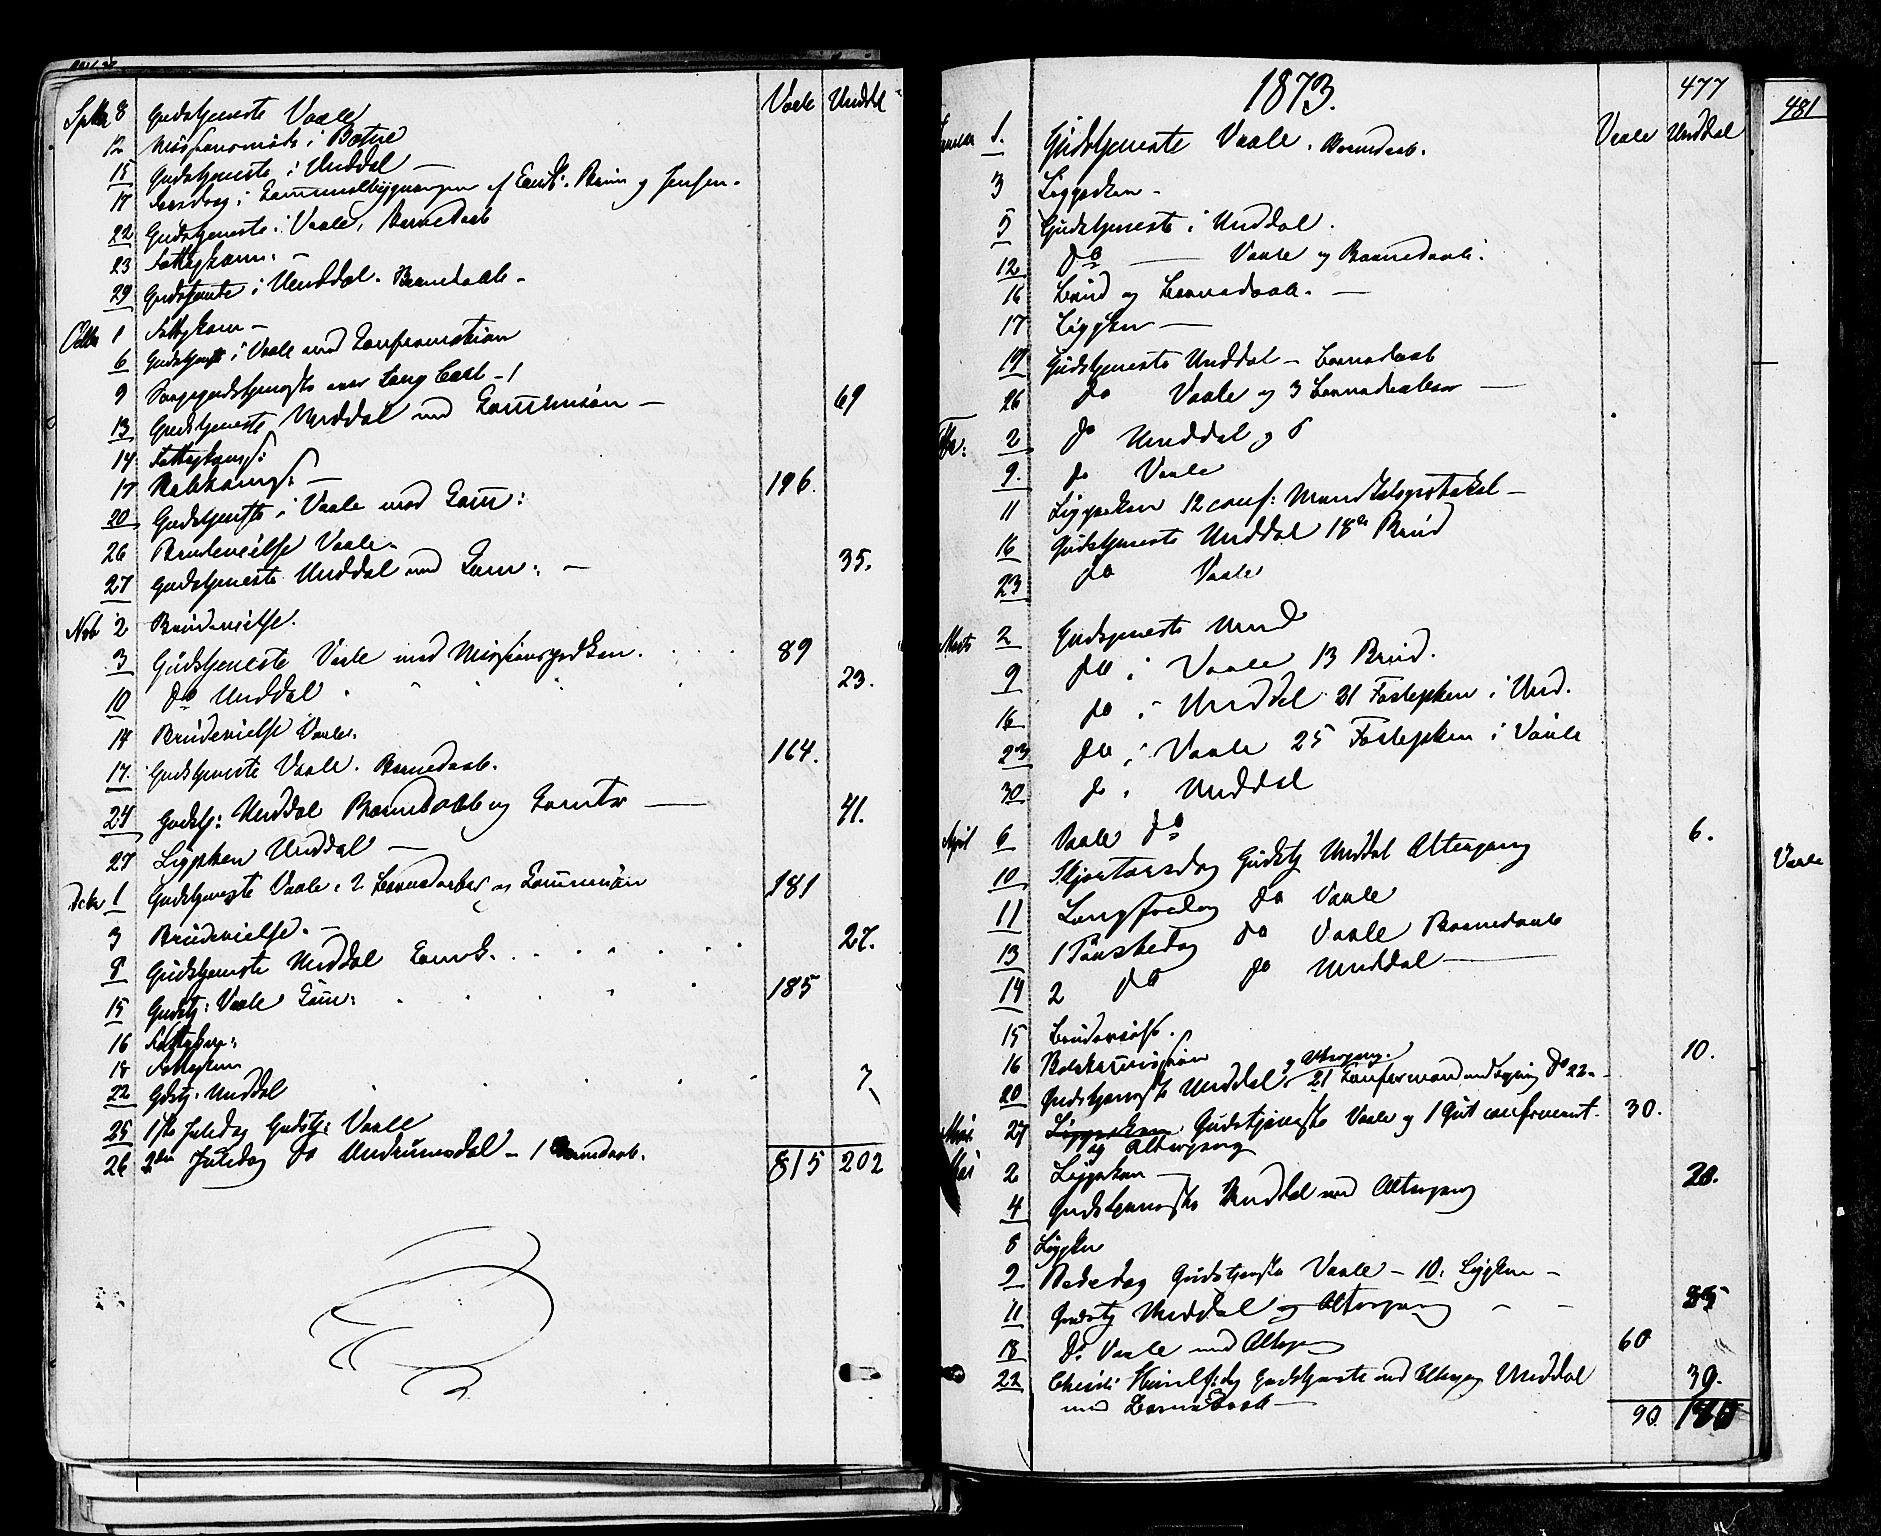 Vaale Unddl
Septbr 8 Gudstjeneste Vaale
12 Missionsmøde i Botne
15 Gudstjeneste i Unddal —
17 Foredrag i af Cand. Bruun og Jensen.
22 Gudstjeneste i Vaale, Barnedaab
23 Fattigkom: —
29 Gudstjeneste i Unddal. Barnedaab —
Octbr 1 Fattigkom —
6 Gudstjenst i Vaale med Confirmation
9 Sørgegudstjeneste over Kong Carl —
13 Gudstjeneste Unddal med Communion — 69
14 Fattigkomms:
17 Valkoms: —
20 Gudstjenste i Vaale med Com: 196.
26 Brudevielse Vaale.
27 Gudstjeneste Unddal med Com: — 35.
Nvb 2 Brudevielse.
3 Gudstjeneste Vaale med Missionsprdken. 89
10 do Unddal 23.
14 Brudevielse Vaale.
17. Gudstjeneste Vaale. Barnedaab. 164.
24 Gudstj: Unddal Barnedaab og Comm — 41.
27 Ligprken Unddal —
Dcbr 1 Gudstjeneste Vaale. 2 Barnedaaber og Communion 181
3 Brudevielse. —
8 Gudstjeneste Unddal Comm. 27.
15 Gudstj: Vaale Com: 185
16 Fattigkom:
18 Fattigkom
22 Gdstj. Unddal 7
25 1ste Juledag Gudstj: Vaale
26 2den Juledag do Undrumsdal — 1 Barnedaab. 815 202
1873. 477
Vaale Unddal
1. Gudstjeneste Vaale. Barnedaab.
3 Ligprdken —
5 Gudstjeneste i Unddal.
12 do — Vaale og Barnedaab.
16 Brud og Barnedaab. —
17 Ligprken —
19 Gudstjeneste Unddal — Barnedaab
26 do Vaale og 3 Barnedaaber —
Fbr: 2 do Unddal
9. do Vaale
11 Ligprdken 12 conf: Mandtalsprotokol —
16 Gudstjeneste Unddal 18de Brud
23 do Vaale
Marts 2 Gudstjeneste Und
9 do i Vaale 13 Brud.
16 do i Unddal 21 Fasteprken i Und.
23 do i Vaale 25 Fasteprken i Vaale
30 do i Unddal
April 6 Vaale do 6.
10 Skjærtorsdag Gudstj Unddal Altergang
11 Langfredag do Vaale
13 1 Paaskedag do Vaale Barnedaab
14 2 do do Unddal —
15 Brudevielse.
16 Valkommission 10.
20 Gudstjeneste Unddal og Altergang. 21 Do 22 —
27 Ligprdken Gudstjeneste Vaale og 1 Gut confirmert. 30.
og Altergang
Mai 2 Ligprdken — 20.
4 Gudstjeneste Unddal med Altergang
8 Ligprken
9 Bededag Gudstjeneste Vaale — 10. Ligprken —
11 Gudstj Unddal og Altergang — —
18 Do. Vaale med Alterg 60
22 Christi Himmelf.dag Gudstjeneste med Alterg Unddal 39.
med Barnedaab — 90.
481
Vaale